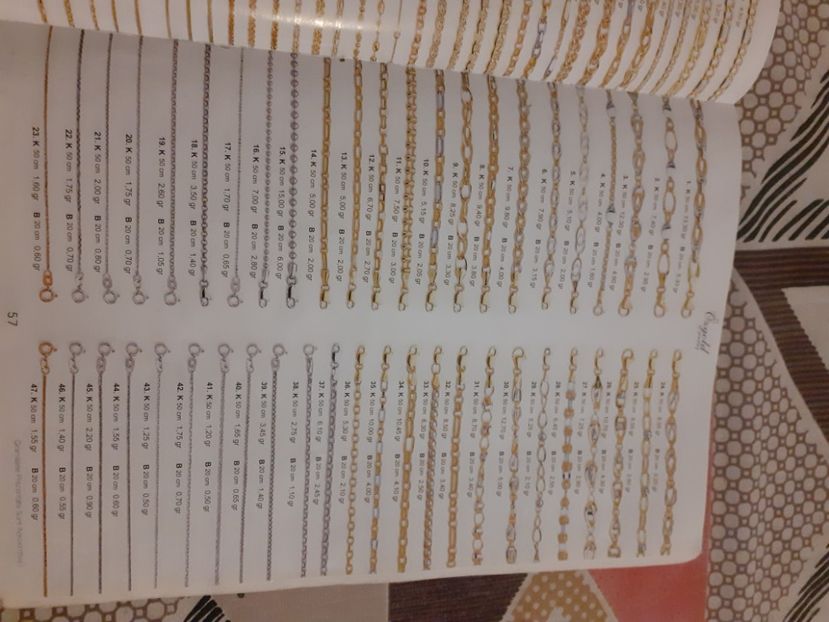 1. K 50 cm 13,30 gr B 20 cm
2. K 50 cm 7,40 gr B 20 cm 2,95 gr
3. K 50 cm 12,30 gr B 20 cm 4,90 gr
4. K 50 cm 4,00 gr B 20 cm 1,60 gr
5. K 50 cm 5,10 gr B 20 cm 2,00 gr
6. K 50 cm 7,90 gr B 20 cm 3,15 gr
7. K 50 cm 9,80 gr B 20 cm 4,00 gr
8. K 50 cm 9,40 gr B 20 cm 3,80 gr
9. K 50 cm 8,25 gr B 20 cm 3,30 gr
10. K 50 cm 5,15 gr B 20 cm 2,05 gr
11. K 50 cm 7,50 gr B 20 cm 3,00 gr
12. K 50 cm 6,70 gr B 20 cm 2,70 gr
13. K 50 cm 5,00 gr B 20 cm 2,00 gr
14. K 50 cm 5,00 gr B 20 cm 2,00 gr
15. K 50 cm 15,00 gr B 20 cm 6,00 gr
16. K 50 cm 7,00 gr B 20 cm 2,80 gr
17. K 50 cm 1,70 gr B 20 cm 0,65 gr
18. K 50 cm 3,50 gr B 20 cm 1,40 gr
19. K 50 cm 2,60 gr B 20 cm 1,05 gr
20. K 50 cm 1,75 gr B 20 cm 0,70 gr
21. K 50 cm 2,00 gr B 20 cm 0,80 gr
22. K 50 cm 1,75 gr B 20 cm 0,70 gr
23. K 50 cm 1,60 gr B 20 cm 0,60 gr
24. K 50 cm B 20 cm
25. K 50 cm B 20 cm
26. K 50 cm B 20 cm
27. K 50 cm 7,25 gr B 20 cm
28. K 50 cm B 20 cm
29. K 50 cm 5,25 gr B 20 cm 2,10 gr
30. K 50 cm 12,70 gr B 20 cm 5,00 gr
31. K 50 cm B 20 cm 3,40 gr
32. K 50 cm 8,50 gr B 20 cm 3,40 gr
33. K 50 cm 6,30 gr B 20 cm 2,50 gr
34. K 50 cm 10,45 gr B 20 cm 4,10 gr
35. K 50 cm 10,00 gr B 20 cm 4,00 gr
36. K 50 cm 5,30 gr B 20 cm 2,10 gr
37. K 50 cm 6,10 gr B 20 cm 2,45 gr
38. K 50 cm 2,75 gr B 20 cm 1,10 gr
39. K 50 cm 3,45 gr B 20 cm 1,40 gr
40. K 50 cm 1,65 gr B 20 cm 0,65 gr
41. K 50 cm 1,20 gr B 20 cm 0,50 gr
42. K 50 cm 1,75 gr B 20 cm 0,70 gr
43. K 50 cm 1,25 gr B 20 cm 0,50 gr
44. K 50 cm 1,55 gr B 20 cm 0,60 gr
45. K 50 cm 2,20 gr B 20 cm 0,90 gr
46. K 50 cm 1,40 gr B 20 cm 0,55 gr
47. K 50 cm 1,55 gr B 20 cm 0,60 gr
57